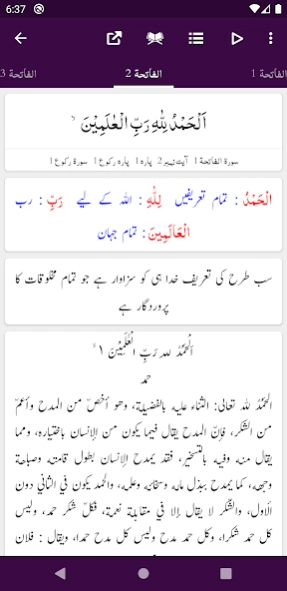 6:37
الفاتحة 1
الفاتحة 2
الفاتحة 3
اَلْحَمْدُ لِلّٰهِ رَبِّ الْعٰلَمِیْنَ
سورۃ الفاتحۃ 1 آیت نمبر 2 پارہ 1 پارہ رکوع 1 سورۃ رکوع 1
الْحَمْدُ : تمام تعریفیں لِلّٰهِ : اللہ کے لیے رَبِّ : رب
الْعَالَمِينَ : تمام جہان
سب طرح کی تعریف خدا ہی کو سزاوار ہے جو تمام مخلوقات کا
پروردگار ہے
الْحَمْدُ لله رَبِّ الْعٰلَمِيْنَ ١
حمد
الحَمْدُ لله تعالى: الثناء عليه بالفضيلة، وهو أخصّ من المدح وأعمّ
من الشكر، فإنّ المدح يقال فيما يكون من الإنسان باختياره، ومما
يقال منه وفيه بالتسخير، فقد يمدح الإنسان بطول قامته وصباحة
وجهه، كما يمدح ببذل ماله وسخائه وعلمه، والحمد يكون في الثاني دون
الأول، والشّكر لا يقال إلا في مقابلة نعمة، فكلّ شكر حمد، وليس
كل حمد شكرا، وكل حمد مدح وليس كل مدح حمدا، ويقال : فلان